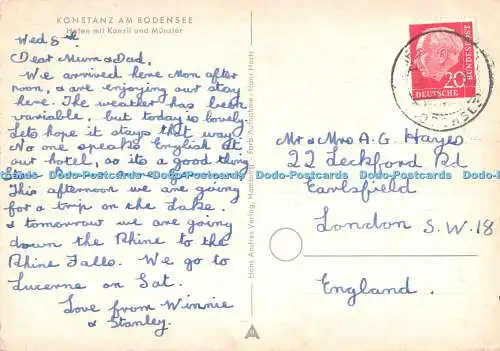 KONSTANZ AM BODENSEE
Hafen mit Konzil und Münster
Wed 8th
Dear Mum & Dad,
We arrived here Mon after
noon, & are enjoying our stay
here. The weather has been
variable, but today is lovely.
Lets hope it stays that way.
No one speaks English at
our hotel, so its a good thing
This afternoon we are going
for a trip on the Lake.
& tomorrow we are going
down the Rhine to the
Rhine Falls. We go to
Lucerne on Sat.
Love from Winnie
& Stanley.
Hans Andres Verlag, Hamburg
Farb-Aufnahme: Hans Hartz
20
DEUTSCHE
BUNDESPOST
Mr & Mrs A. G. Hayes
22 Leckford Rd
Earlsfield
London S.W.18
England.
Dodo-Postcards Dodo-Postcards Dodo-Postcards Dodo-Postcards Dodo-Postcards